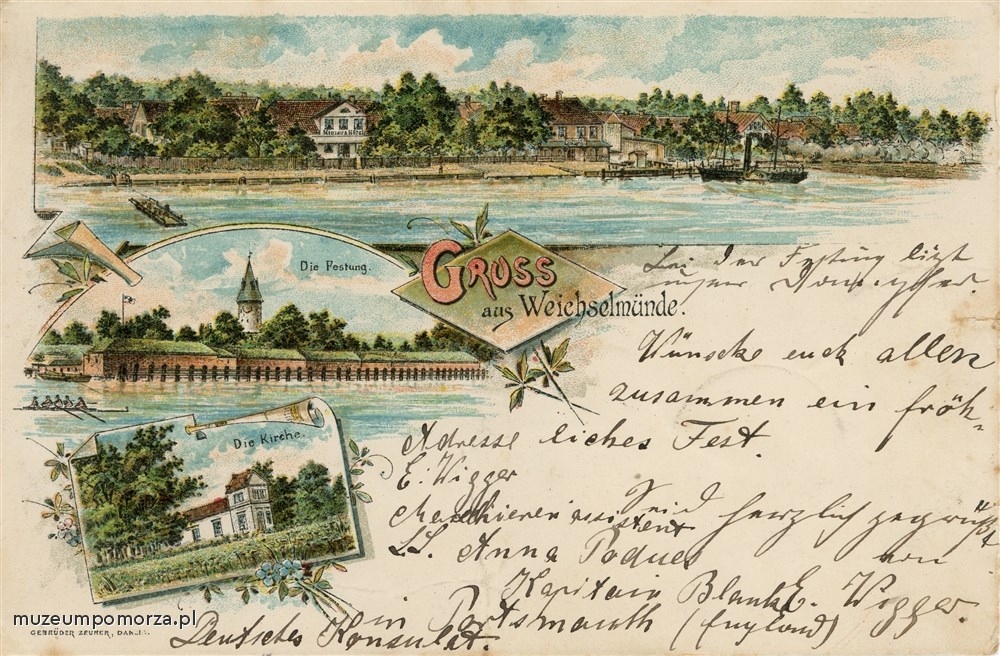 Die Festung.
GRUSS
aus Weichselmünde.
Bei der Festung liegt
unser Dampfer.
Wünsche euch allen
zusammen ein fröh-
liches Fest.
Seid herzlich gegrüßt
von
E. Wigger.
Adresse
E. Wigger
Maschinenassistent
SS. Anna
Kapitain Blank
in Portsmouth (England)
Deutsches Konsulat.
Die Kirche.
muzeumpomorza.pl
GEBRÜDER ZEUNER, DANZIG.